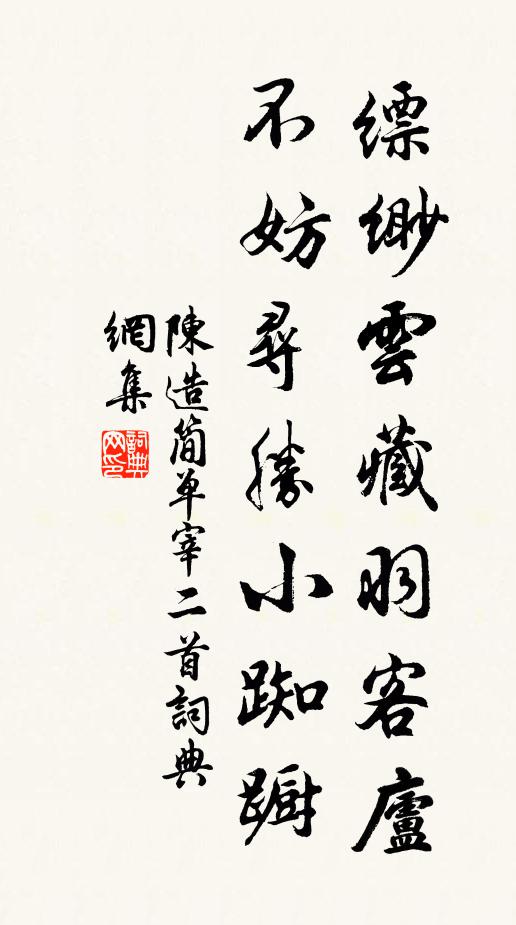 縹緲雲藏羽客廬
不妨尋勝小踟躕
陳造簡單宰二首詞典
網集
詞典網印